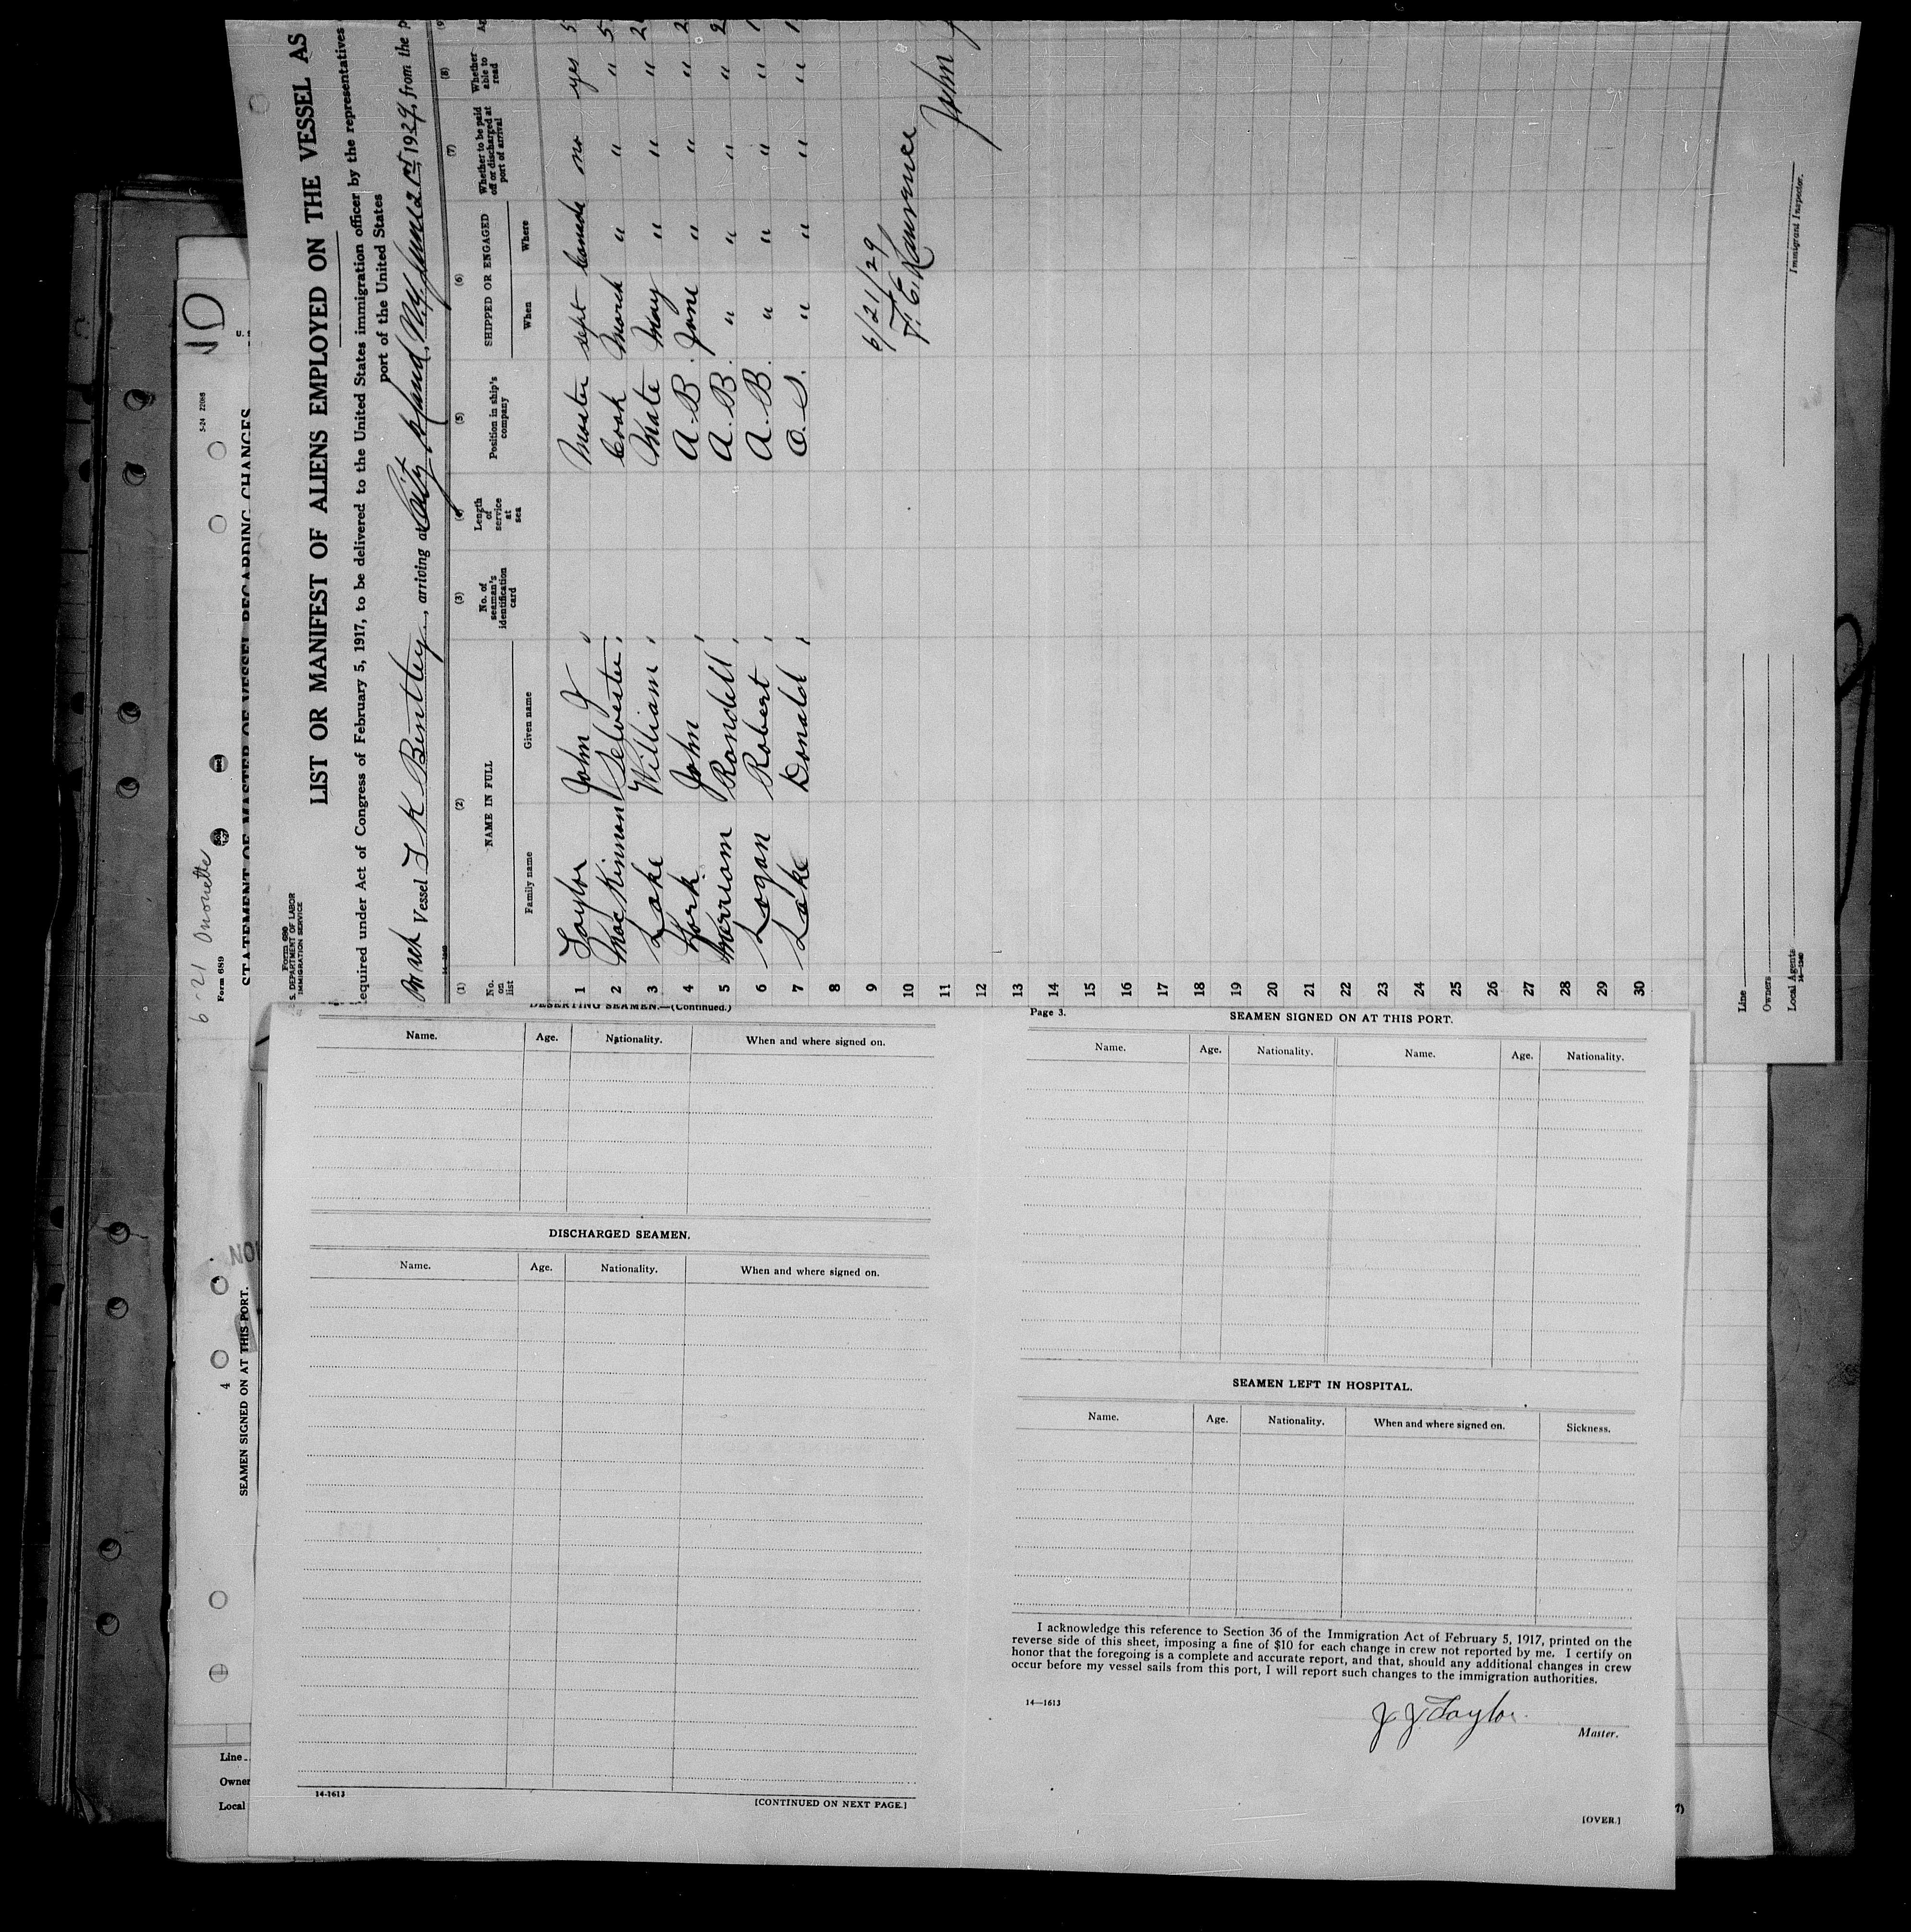 6-21
Form 689
STATEMENT OF MASTER OF VESSEL REGARDING CHANGES
5-24 22088
Form 680
S. DEPARTMENT OF LABOR
IMMIGRATION SERVICE
LIST OR MANIFEST OF ALIENS EMPLOYED ON THE VESSEL AS
equired under Act of Congress of February 5, 1917, to be delivered to the United States immigration officer by the representatives
port of the United States
Vessel T K Bentley, arriving at City Island, N.Y. June 21st, 1929, from the p
(1) (2) (3) (4) (5) (6) (7) (8)
No. on list NAME IN FULL No. of seaman's identification card Length of service at sea Position in ship's company SHIPPED OR ENGAGED Whether to be paid off or discharged at port of arrival Whether able to read
Family name Given name When Where
1 Taylor John J Master sept Canada no yes 5
2 MacKinnon Selvester Cook March " " " 5
3 Lake William Mate May " " " 2
4 York John A.B. June " " " 2
5 Merriam Randell A.B. " " " " 2
6 Logan Robert A.B. " " " " 1
7 Lake Donald O.S. " " " " 1
8
9 6/21/29
10
11 John J
12
13
14
15
16
17
18
19
20
21
22
23
24
25
26
27
28
29
30
Line
Owners
Local Agents
Immigrant Inspector.
4
SEAMEN SIGNED ON AT THIS PORT.
Line
Owner
Local
DESERTING SEAMEN.—(Continued.)
Name. Age. Nationality. When and where signed on.
DISCHARGED SEAMEN.
Name. Age. Nationality. When and where signed on.
14-1613
[CONTINUED ON NEXT PAGE.]
Page 3.
SEAMEN SIGNED ON AT THIS PORT.
Name. Age. Nationality. Name. Age. Nationality.
SEAMEN LEFT IN HOSPITAL.
Name. Age. Nationality. When and where signed on. Sickness.
I acknowledge this reference to Section 36 of the Immigration Act of February 5, 1917, printed on the
reverse side of this sheet, imposing a fine of $10 for each change in crew not reported by me. I certify on
honor that the foregoing is a complete and accurate report, and that, should any additional changes in crew
occur before my vessel sails from this port, I will report such changes to the immigration authorities.
14—1613
J J Taylor
Master.
[OVER.]